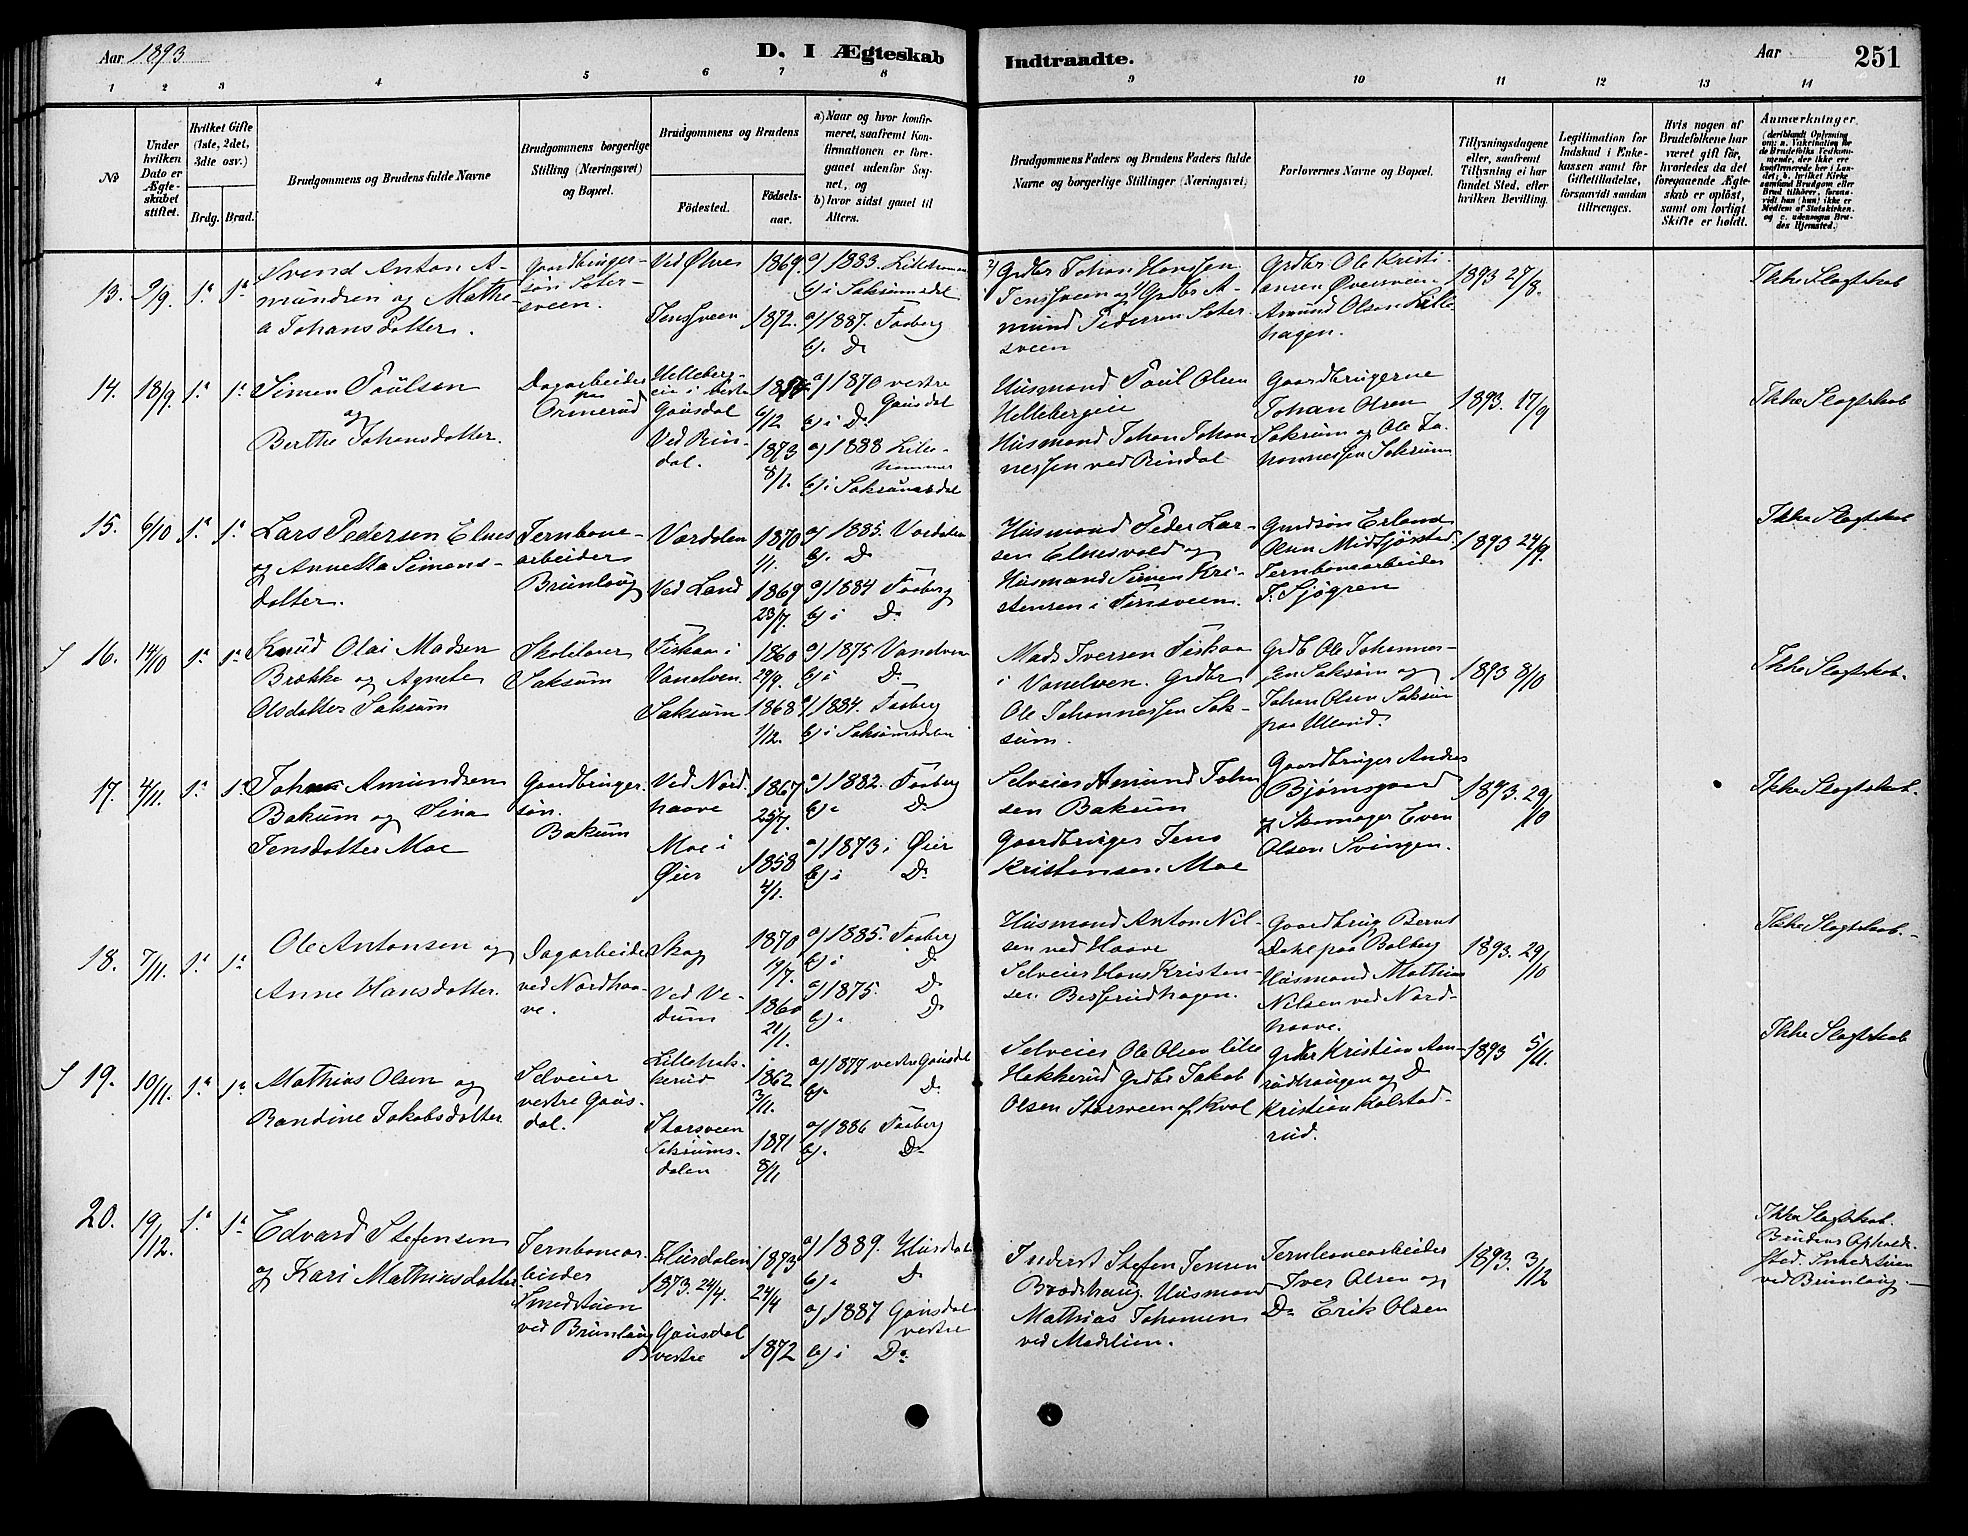 Aar 1893
D. I Ægteskab
Indtraadte.
Aar
251
1 2 3 4 5 6 7 8 9 10 11 12 13 14
No
Under hvilken Dato er Ægteskabet stiftet.
Hvilket Gifte (1ste, 2det, 3die osv.)
Brdg. Brud.
Brudgommens og Brudens fulde Navne
Brudgommens borgerlige Stilling (Næringsvei) og Bopæl.
Brudgommens og Brudens
Fødested.
Fødselsaar.
a) Naar og hvor konfirmeret, saafremt Konfirmationen er foregaaet udenfor Sognet, og
b) hvor sidst gaaet til Alters.
Brudgommens Faders og Brudens Faders fulde Navne og borgerlige Stillinger (Næringsvei)
Forlovernes Navne og Bopæl.
Tillysningsdagene eller, saafremt Tillysning ei har fundet Sted, efter hvilken Bevilling.
Legitimation for Indskud i Enkekassen samt for Giftetilladelse, forsaavidt saadan tiltrænges.
Hvis nogen af Brudefolkene har været gift før, hvorledes da det foregaaende Ægteskab er opløst, samt om lovligt Skifte er holdt.
Anmærkninger.
13. 9/9. 1ª 1ª
Svend Anton A-
mundsen og Mathe-
a Johansdotter.
Gaardbruger-
søn Seter-
sveen.
Ved Ølves
Jensveen
1869.
1872.
a) 1883. Lillehammer
b) i Saksumsdal
a) 1887. Faaberg
b). Do
2) Grdbr Johan Hansen
Jensveen og 1) Grdbr A-
mund Pedersen Seter-
sveen
Grdbr Ole Kristi-
ansen Øversveen
Amund Olsen Lille-
hagen.
1893 27/8.
Ikke Slægtskab
14. 18/9. 1ª 1ª
Simen Paulsen
og
Berthe Johansdotter.
Dagarbeider
paa
Ormerud
Helleberg-
eie i vestre
Gausdal
Ved Rin-
dal.
6/12
1873
8/1.
a) 1870 vestre
Gausdal
b) i Do
a) 1888 Lille-
hammer
b) i Saksumsdal
Husmand Paul Olsen
Hellebergeie
Husmand Johan Johan-
nessen ved Rindal
Gaardbrugerne
Johan Olsen
Saksum og Ole Jo-
hannessen Saksum
1893. 17/9
Ikke Slægtskab
15. 6/10 1ª 1ª
Lars Pedersen Elnes
og Annetta Simens-
dotter.
Jernbane-
arbeider
Brunlaug
Værdalen
Ved Land
1870
1/1.
1869
23/7.
a) 1885. Værdalen
b). Do
a) 1884 Faaberg
b) i Do
Husmand Peder Lar-
sen Elnesvald og
Husmand Simen Kri-
stensen i Jensveen.
Grdsøn Erland
Olsen Midtsjørstad.
Jernbanearbeider
J. Sjøgren
1893 24/9.
Ikke Slægtskab
16. 14/10 1ª 1ª
Knud Olai Madsen
Brække og Agnete
Olsdotter Saksum
Skolelærer
Saksum
Fiskaa i
Vanelven.
Saksum
1860
29/9.
1868
1/12.
a) 1875 Vanelven
b) i Do
a) 1884. Faaberg
b) i Saksumsdalen
Mads Iversen Fiskaa
i Vanelven. Grdbr
Ole Johannessen Sak-
sum.
Grdb Ole Johannes-
sen Saksum og
Johan Olsen Saksum
paa Uland.
1893 8/10
Ikke Slægtskab.
17. 4/11. 1ª 1ª
Johan Amundsen
Baksum og Sina
Jensdotter Moe
Gaardbruger-
søn.
Baksum
Ved Nord-
haave
Moe i
Øier
1867
25/7.
1858
4/1.
a) 1882. Faaberg
b) Do
a) 1873 i Øier
b) i Do
Selveier Amund Johan-
sen Baksum
Gaardbruger Jens
Kristensen Moe
Gaardbruger Andres
Bjørnsgaard
og Skomager Even
Olsen Svingen.
1893. 29/10
Ikke Slægtskab.
18. 7/11. 1ª 1ª
Ole Antonsen og
Anne Hansdotter.
Dagarbeider
ved Nordhaa-
ve.
Skog
Ved Ve-
dum
1870
19/7.
1860
21/1.
a) 1885. Faaberg
b) i Do
a) 1875. Do
b). Do
Husmand Anton Nil-
sen ved Haave
Selveier Hans Kristen-
sen Besserudhagen.
Gaardbrug Bernt
Dahl paa Balberg
Husmand Mathias
Nilsen ved Nord-
haave.
1893. 29/10
Ikke Slægtskab.
19. 10/11. 1ª 1ª
Mathias Olsen og
Randine Jakobsdotter
Selveier
vestre Gaus-
dal.
Lillehak-
kerud
Storsveen
Saksums-
dalen
1862
3/11.
1871
8/11.
a) 1877 vestre Gausdal
b). Do
a) 1886 Faaberg
b). Do
Selveier Ole Olsen Lille
Hakkerud Grdbr Jakob
Olsen Storsveen af Kval
Grdbr Kristian Aan-
rudhaugen og Do
Kristian Kolstad-
rud.
1893 5/11.
Ikke Slægtskab
20. 19/12. 1ª 1ª
Edvard Stefensen
og Kari Mathiasdotter
Jernbanear-
beider
Smedstuen
ved Brunlaug
Hurdalen
1873. 24/4.
Gausdal
vestre
1873
24/4
1872
a) 1889. Hurdal
b). Do
a) 1887 Gausdal
vestre
b) i Do.
Inderst Stefen Jensen
Brødshaug. Husmand
Mathias Johansen
ved Madslien.
Jernbanearbeider
Iver Olsen og
Do Erik Olsen
1893. 3/12
Ikke Slægtskab.
Brudens Ophold-
sted. Smedstuen
ved Brunlaug.